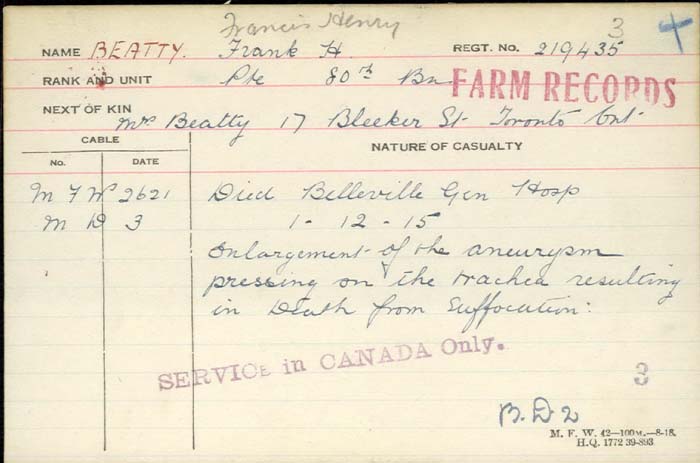 Francis Henry
3
4
NAME BEATTY. Frank H. REGT. No. 219435
RANK AND UNIT Pte 80th Bn
FARM RECORDS
NEXT OF KIN Mrs Beatty 17 Bleeker St Toronto Ont
CABLE
NATURE OF CASUALTY
No. DATE
M F W 2621 Died Belleville Gen Hosp
M D 3 1-12-15
Enlargement of the aneurysm
pressing on the trachea resulting
in Death from Suffocation:
SERVICE in CANADA Only.
B.D.2
M. F. W. 42—100M.—8-18.
H.Q. 1772 39-893